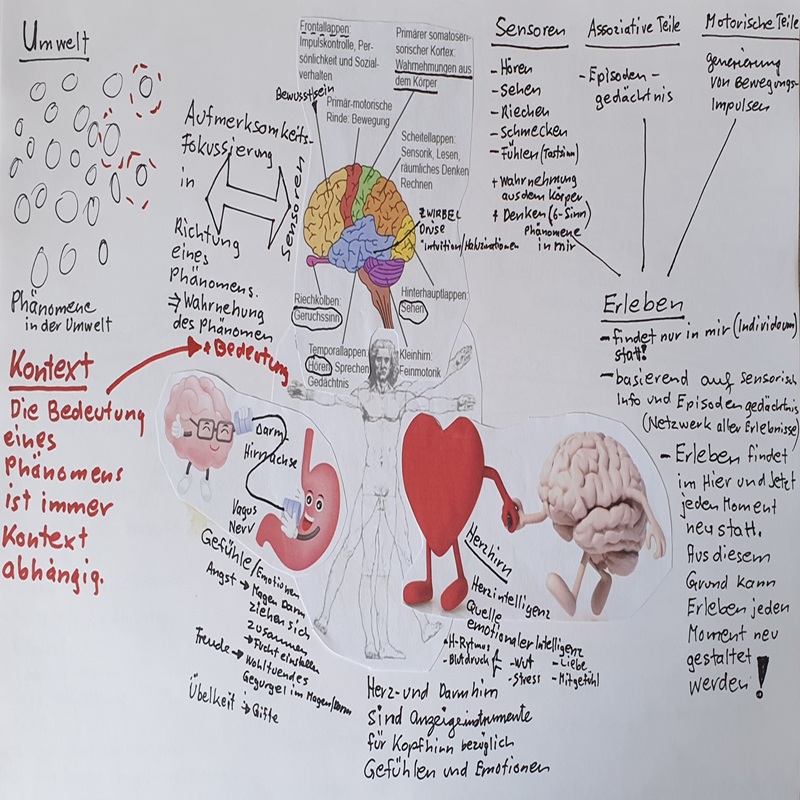 Umwelt
Phänomene
in der Umwelt
Aufmerksamkeits-
Fokussierung
in
Richtung
eines
Phänomens.
⇒ Wahrnehung
des Phänomen
+ Bedeutung
Sensoren
Kontext
Die Bedeutung
eines
Phänomens
ist immer
Kontext
abhängig.
Frontallappen:
Impulskontrolle, Per-
sönlichkeit und Sozial-
verhalten
Bewusstsein
Primärer somatosen-
sorischer Kortex:
Wahrnehmungen aus
dem Körper
Primär-motorische
Rinde: Bewegung
Scheitellappen:
Sensorik, Lesen,
räumliches Denken
Rechnen
ZWIRBEL
Drüse
*Intuition/Haluzinationen
Riechkolben:
Geruchssinn
Hinterhauptlappen:
Sehen
Temporallappen
Hören Sprechen
Gedächtnis
Kleinhirn:
Feinmotorik
Sensoren
- Hören
- Sehen
- Riechen
- Schmecken
- Fühlen (Tastsinn)
+ Wahrnehmung
aus dem Körper
+ Denken (6-Sinn)
Phänomene
in mir
Assoziative Teile
- Episoden-
gedächtnis
Motorische Teile
generierung
von Bewegungs-
Impulsen
Erleben
- findet nur in mir (Individuum)
statt!
- basierend auf sensorisch
Info und Episodengedächtnis
(Netzwerk aller Erlebnisse)
- Erleben findet
im Hier und Jetzt
jeden Moment
neu statt.
Aus diesem
Grund kann
Erleben jeden
Moment neu
gestaltet
werden!
Darm-
Hirnachse
Vagus
Nerv
Gefühle/Emotionen
Angst → Magen Darm
ziehen sich
zusammen
→ Fucht einstellen
Freude → Wohltuendes
Gegurgel im Magen/Darm
Übelkeit → Gifte
Herzhirn
Herzintelligenz
Quelle
emotionaler Intelligenz
- H-Rytmus
- Blutdruck
- Wut
- Stress
- Liebe
- Mitgefühl
Herz- und Darmhirn
sind Anzeigeinstrumente
für Kopfhirn bezüglich
Gefühlen und Emotionen